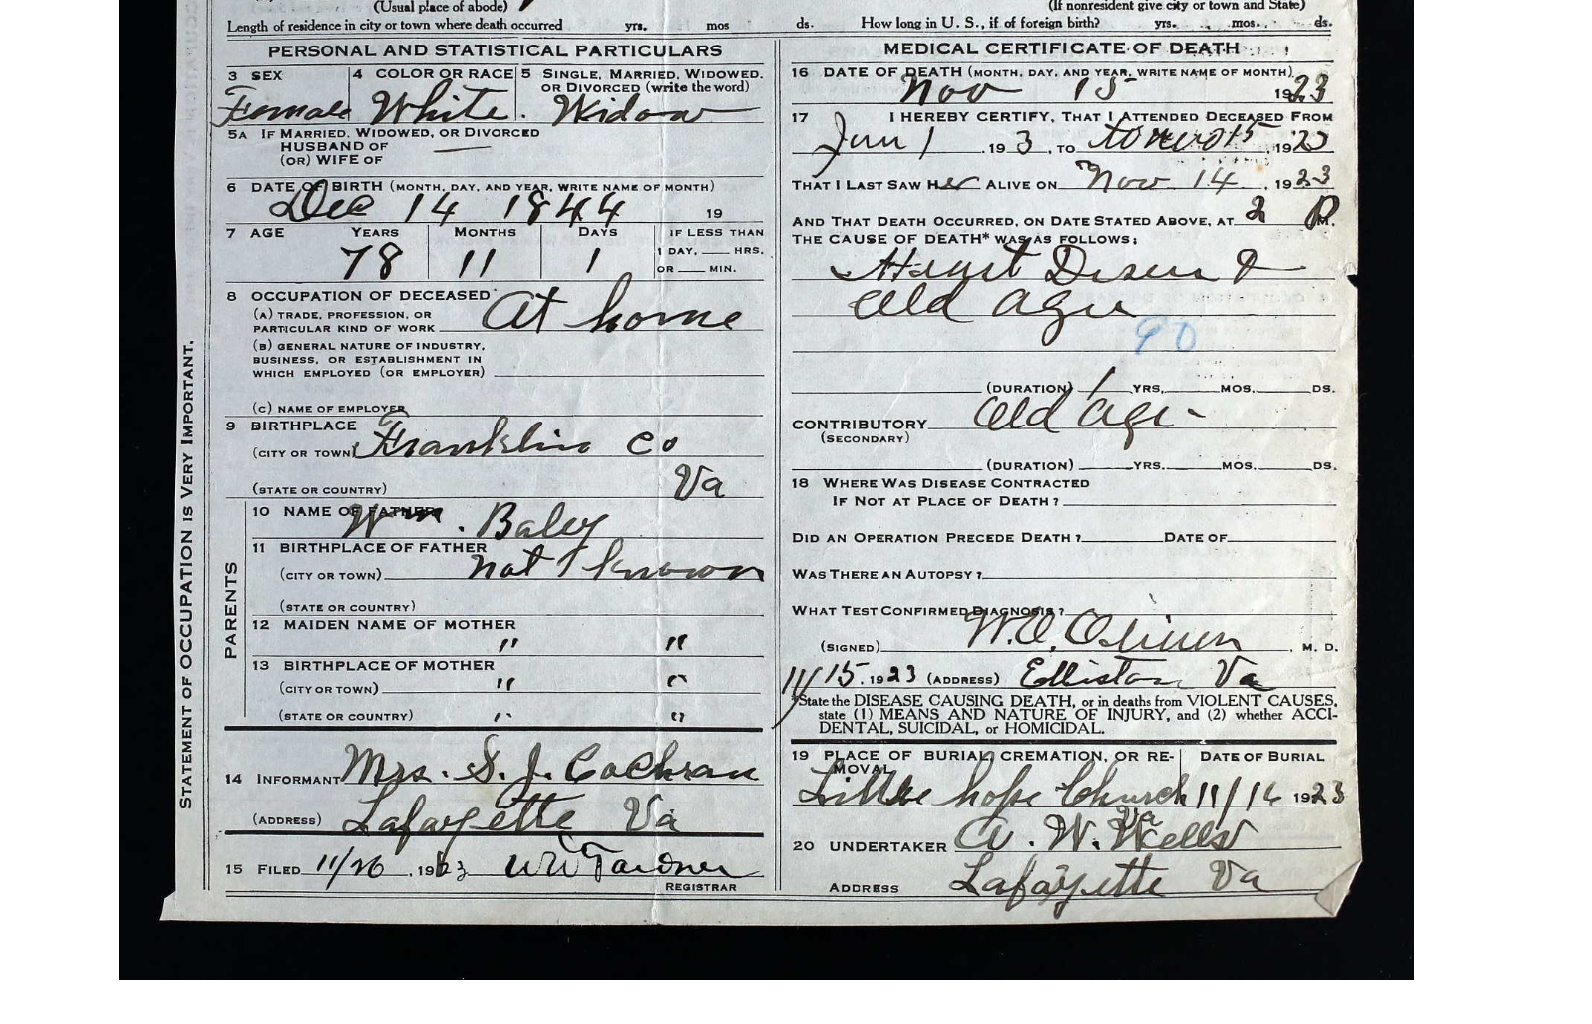 (Usual place of abode)
(If nonresident give city or town and State)
Length of residence in city or town where death occurred yrs. mos ds. How long in U. S., if of foreign birth? yrs. mos. ds.
STATEMENT OF OCCUPATION IS VERY IMPORTANT.
PERSONAL AND STATISTICAL PARTICULARS
3 SEX
Female
4 COLOR OR RACE
White.
5 SINGLE, MARRIED, WIDOWED,
OR DIVORCED (write the word)
Widow
5A IF MARRIED, WIDOWED, OR DIVORCED
HUSBAND OF
(OR) WIFE OF
6 DATE OF BIRTH (MONTH, DAY, AND YEAR, WRITE NAME OF MONTH)
Dec 14 1844 19
7 AGE YEARS MONTHS DAYS IF LESS THAN
78 11 1 1 DAY, HRS.
OR MIN.
8 OCCUPATION OF DECEASED
(A) TRADE, PROFESSION, OR
PARTICULAR KIND OF WORK At home
(B) GENERAL NATURE OF INDUSTRY,
BUSINESS, OR ESTABLISHMENT IN
WHICH EMPLOYED (OR EMPLOYER)
(C) NAME OF EMPLOYER
9 BIRTHPLACE
(CITY OR TOWN) Franklin Co
(STATE OR COUNTRY) Va
PARENTS
10 NAME OF FATHER Wm. Baley
11 BIRTHPLACE OF FATHER
(CITY OR TOWN) not known
(STATE OR COUNTRY)
12 MAIDEN NAME OF MOTHER
" "
13 BIRTHPLACE OF MOTHER
(CITY OR TOWN) " "
(STATE OR COUNTRY) " "
14 INFORMANT Mrs. S. J. Cochran
(ADDRESS) Lafayette Va
15 FILED 11/26, 1923 WW Gardner
REGISTRAR
MEDICAL CERTIFICATE OF DEATH
16 DATE OF DEATH (MONTH, DAY, AND YEAR, WRITE NAME OF MONTH)
Nov 15 1923
17 I HEREBY CERTIFY, THAT I ATTENDED DECEASED FROM
1, 19 3, TO 15, 192
THAT I LAST SAW HER ALIVE ON Nov 14, 1923
AND THAT DEATH OCCURRED, ON DATE STATED ABOVE, AT 2 P M.
THE CAUSE OF DEATH* WAS AS FOLLOWS:
Heart &
old age
90
(DURATION) 1 YRS. MOS. DS.
CONTRIBUTORY old age
(SECONDARY)
(DURATION) YRS. MOS. DS.
18 WHERE WAS DISEASE CONTRACTED
IF NOT AT PLACE OF DEATH?
DID AN OPERATION PRECEDE DEATH? DATE OF
WAS THERE AN AUTOPSY?
WHAT TEST CONFIRMED DIAGNOSIS?
(SIGNED) W.O. , M. D.
11/15, 1923 (ADDRESS) Elliston Va
*State the DISEASE CAUSING DEATH, or in deaths from VIOLENT CAUSES,
state (1) MEANS AND NATURE OF INJURY, and (2) whether ACCI-
DENTAL, SUICIDAL, or HOMICIDAL.
19 PLACE OF BURIAL, CREMATION, OR RE-
MOVAL
DATE OF BURIAL
Little hope Church Va 11/16 1923
20 UNDERTAKER A. W. Wells
ADDRESS Lafayette Va